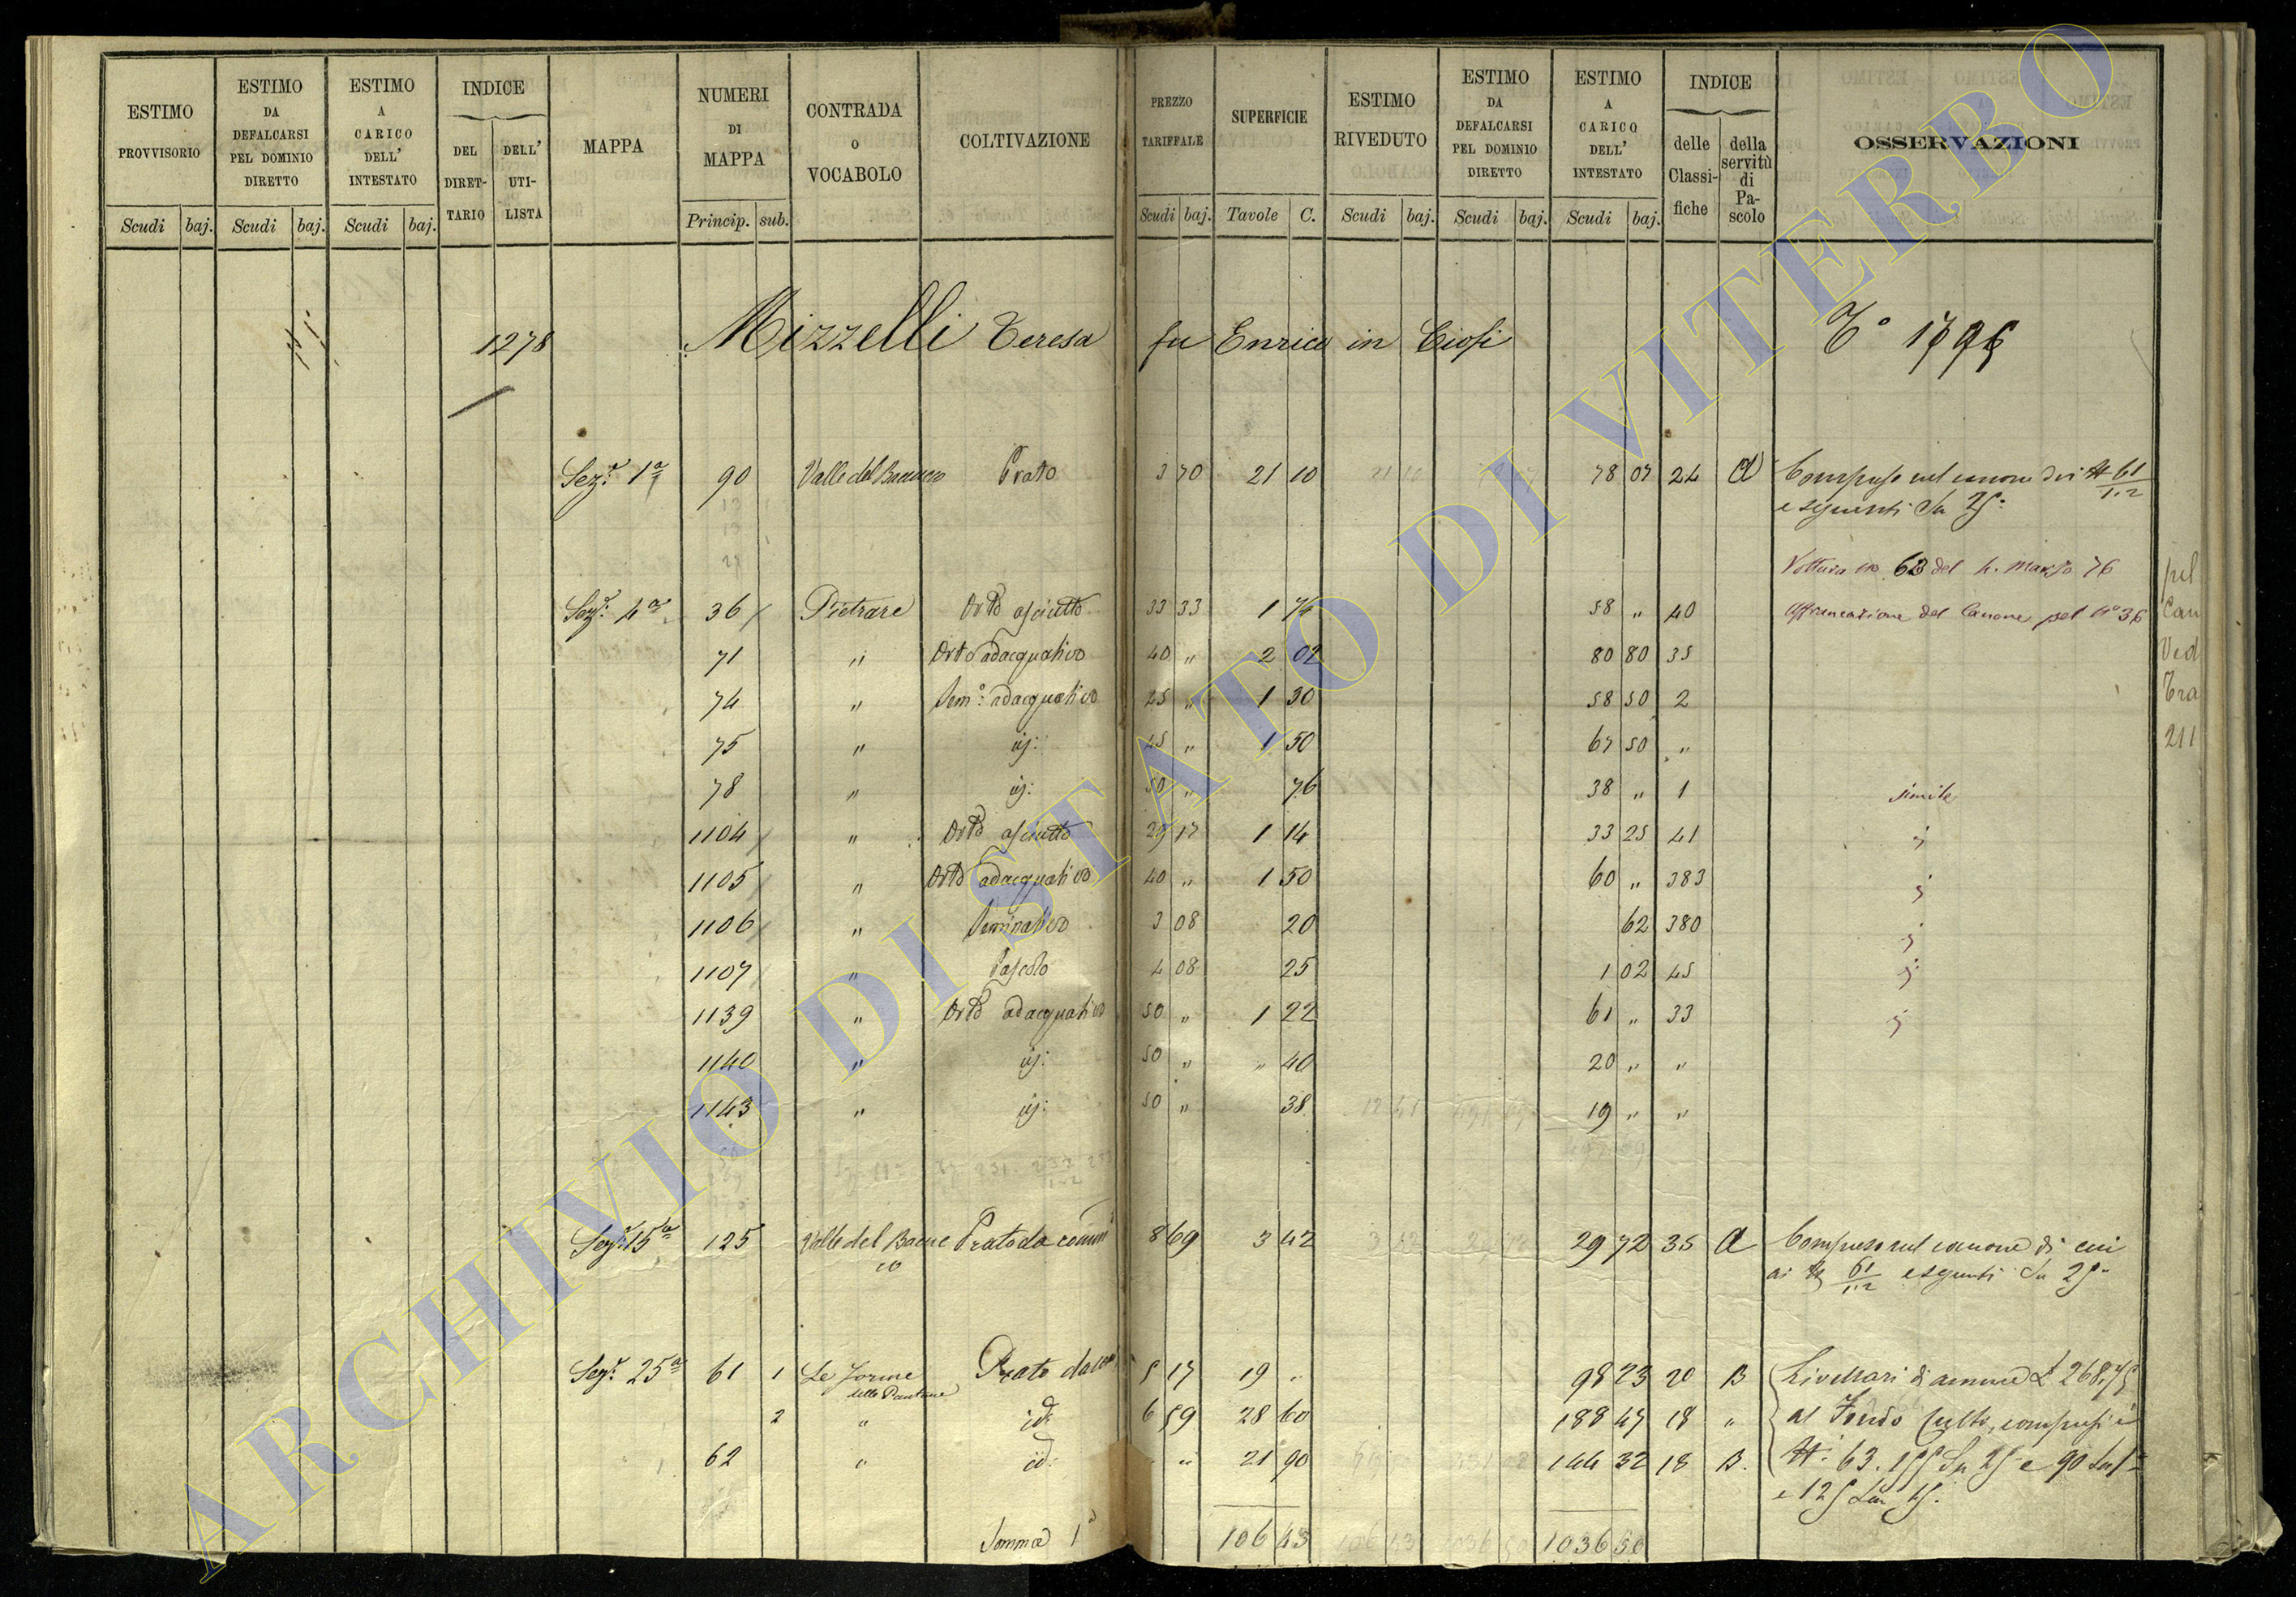 ESTIMO PROVVISORIO Scudi baj.
ESTIMO DA DEFALCARSI PEL DOMINIO DIRETTO Scudi baj.
ESTIMO A CARICO DELL' INTESTATO Scudi baj.
INDICE DEL DIRET-TARIO DELL' UTI-LISTA
MAPPA
NUMERI DI MAPPA Princip. sub.
CONTRADA o VOCABOLO
COLTIVAZIONE
PREZZO TARIFFALE Scudi baj.
SUPERFICIE Tavole C.
ESTIMO RIVEDUTO Scudi baj.
ESTIMO DA DEFALCARSI PEL DOMINIO DIRETTO Scudi baj.
ESTIMO A CARICO DELL' INTESTATO Scudi baj.
INDICE delle Classi-fiche della servitù di Pa-scolo
OSSERVAZIONI
1278 Mizzelli Teresa fu Enrico in Ciofi
Sez.e 1a 90 Valle del Prato 3 70 21 10 78 07 24 A Compreso nel canone dei 61/1.2
e seguenti Sn 25a
Voltura no 63 del 4. Marzo 76
Sez.e 4a 36 Pietrare Orto asciutto 33 33 1 74 58 " 40 Affrancazione del Canone pel no 36
71 " Orto adacquativo 40 " 2 02 80 80 35
74 " Semo: adacquativo 45 " 1 30 58 50 2
75 " id: 45 " 1 50 67 50 "
78 " id: 50 " 76 38 " 1 simile
1104 " Orto asciutto 29 17 1 14 33 25 41 "
1105 " Orto adacquativo 40 " 1 50 60 " 383 "
1106 " Seminativo 3 08 20 62 380 "
1107 " Pascolo 4 08 25 1 02 45 "
1139 " Orto adacquativo 50 " 1 22 61 " 33 "
1140 " id: 50 " " 40 20 " "
1143 " id: 50 " 38 19 " "
Sez.e 15a 125 Valle del Prato da 8 69 3 42 29 72 35 A Compreso nel canone di cui
ai 61/1.2 e seguenti Sn 25a
Sez.e 25a 61 1 Le Prato da 5 17 19 " 98 23 20 B Livellari di annue £ 268,75
2 " id: 6 59 28 60 188 47 18 " al Fondo Culto, compresi i
62 " id: " 21 90 144 32 18 B. 63. Sn 25 e 90
e 125
Somma 1a 106 43 1036 50
pel
Can
Ved
Tra
211
ARCHIVIO DI STATO DI VITERBO